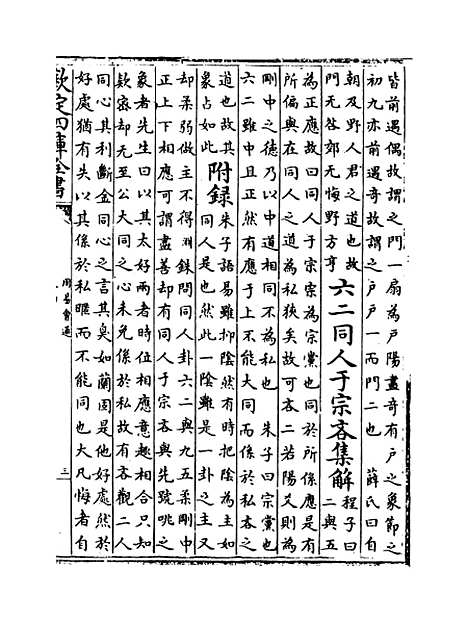 皆前遇偶故謂之門一扇為戶陽畫奇有戶之象節之
初九亦前遇奇故謂之戶戶一而門二也　薛氏曰自
朝及野人君之道也故
門无咎郊无悔野方亨
六二同人于宗吝集解
程子曰
二與五
為正應故曰同人于宗宗為宗黨也同於所係應是有
所偏與在同人之道為私狹矣故可吝二若陽爻則為
剛中之德乃以中道相同不為私也　朱子曰宗黨也
六二雖中且正然有應于上不能大同而係於私吝之
道也故其
象占如此
附録
朱子語易雖抑陰然有時把陰為主如
同人是也然此一陰雖是一卦之主又
却柔弱做主不得淵 銖問同人卦六二與九五柔剛中
正上下相應可謂盡善却有同人于宗吝與先號咷之
象者先生曰以其太好兩者時位相應意趣相合只知
欵密却无至公大同之心未免係於私故有吝觀二人
同心其利斷金同心之言其臭如蘭固是他好處然於
好處猶有失以其係於私暱而不能同也大凡悔者自
欽定四庫全書
周易會通
三